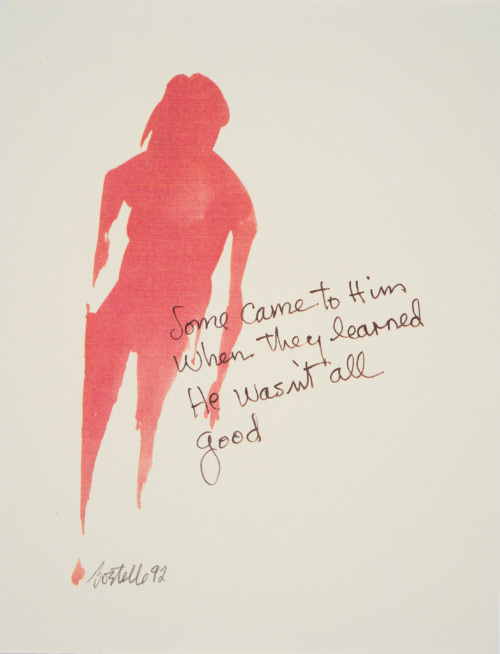 Some came to Him
When they learned
He wasn't all
good
Bostelle 92